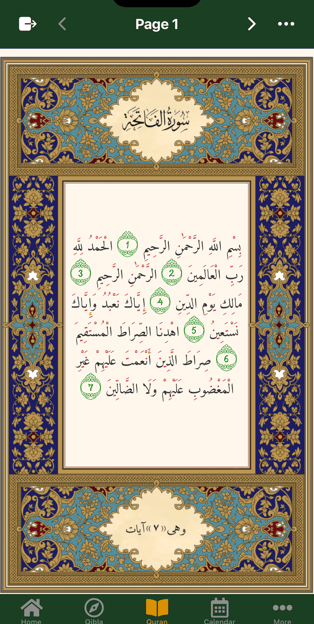 Page 1
سُورَةُ الفَاتِحَةِ
بِسْمِ اللَّهِ الرَّحْمَٰنِ الرَّحِيمِ 1 الْحَمْدُ لِلَّهِ
رَبِّ الْعَالَمِينَ 2 الرَّحْمَٰنِ الرَّحِيمِ 3
مَالِكِ يَوْمِ الدِّينِ 4 إِيَّاكَ نَعْبُدُ وَإِيَّاكَ
نَسْتَعِينُ 5 اهْدِنَا الصِّرَاطَ الْمُسْتَقِيمَ
6 صِرَاطَ الَّذِينَ أَنْعَمْتَ عَلَيْهِمْ غَيْرِ
الْمَغْضُوبِ عَلَيْهِمْ وَلَا الضَّالِّينَ 7
وهي «٧» آيات
Home Qibla Quran Calendar More